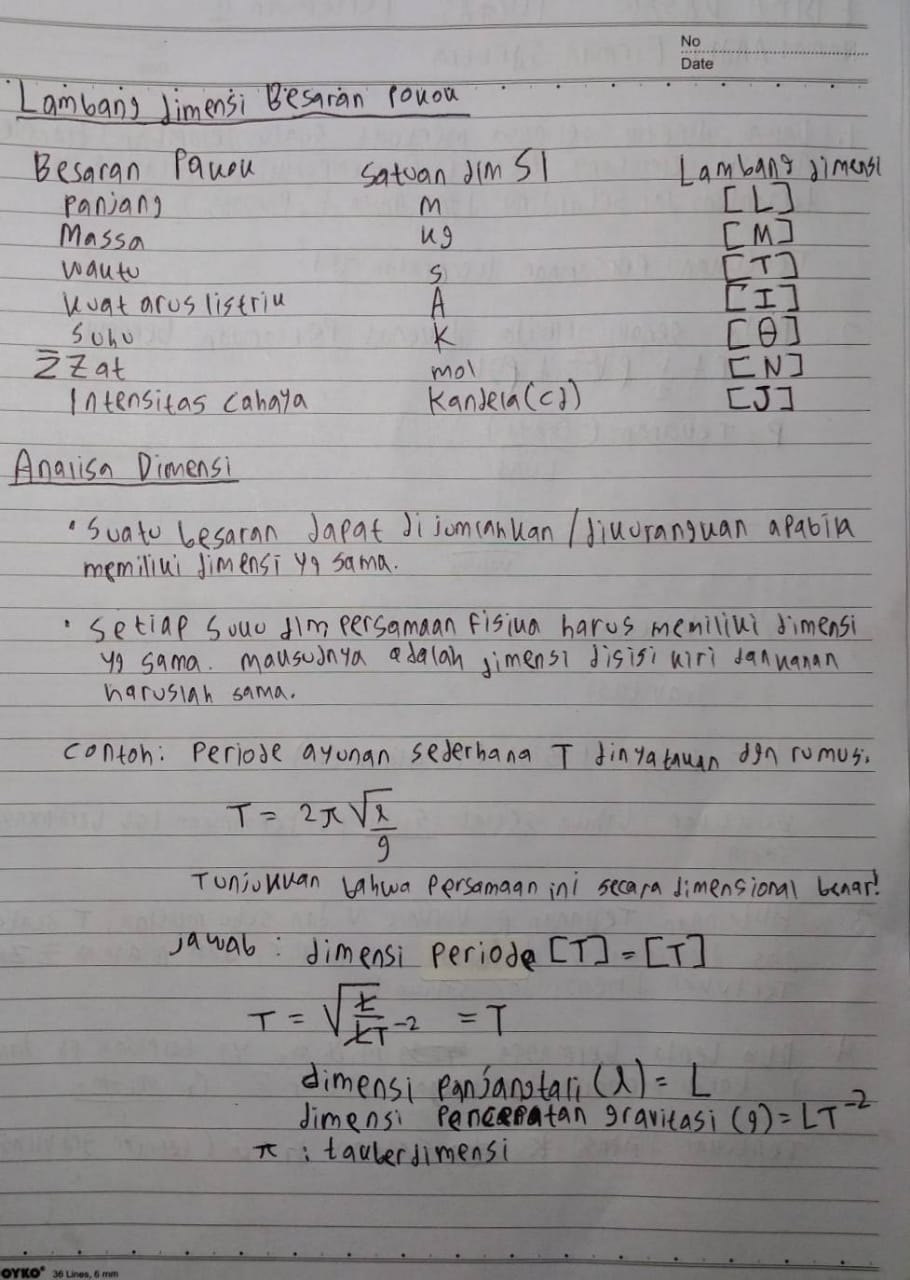 No
Date
Lambang dimensi Besaran Pokok
Besaran Pokok Satuan dlm SI Lambang dimensi
Panjang m [L]
Massa kg [M]
Waktu s [T]
Kuat arus listrik A [I]
Suhu K [θ]
Σ Zat mol [N]
Intensitas cahaya Kandela (cd) [J]
Analisa Dimensi
• Suatu besaran dapat dijumlahkan / dikurangkan apabila
memiliki dimensi yg sama.
• Setiap suku dlm persamaan fisika harus memiliki dimensi
yg sama. maksudnya adalah dimensi disisi kiri dan kanan
haruslah sama.
Contoh: Periode ayunan sederhana T dinyatakan dgn rumus.
T = 2π √l/g
Tunjukkan bahwa persamaan ini secara dimensional benar!
Jawab : dimensi periode [T] = [T]
T = √L/LT⁻² = T
dimensi panjang tali (l) = L
dimensi percepatan gravitasi (g) = LT⁻²
π : takberdimensi
OYKO® 36 Lines, 6 mm